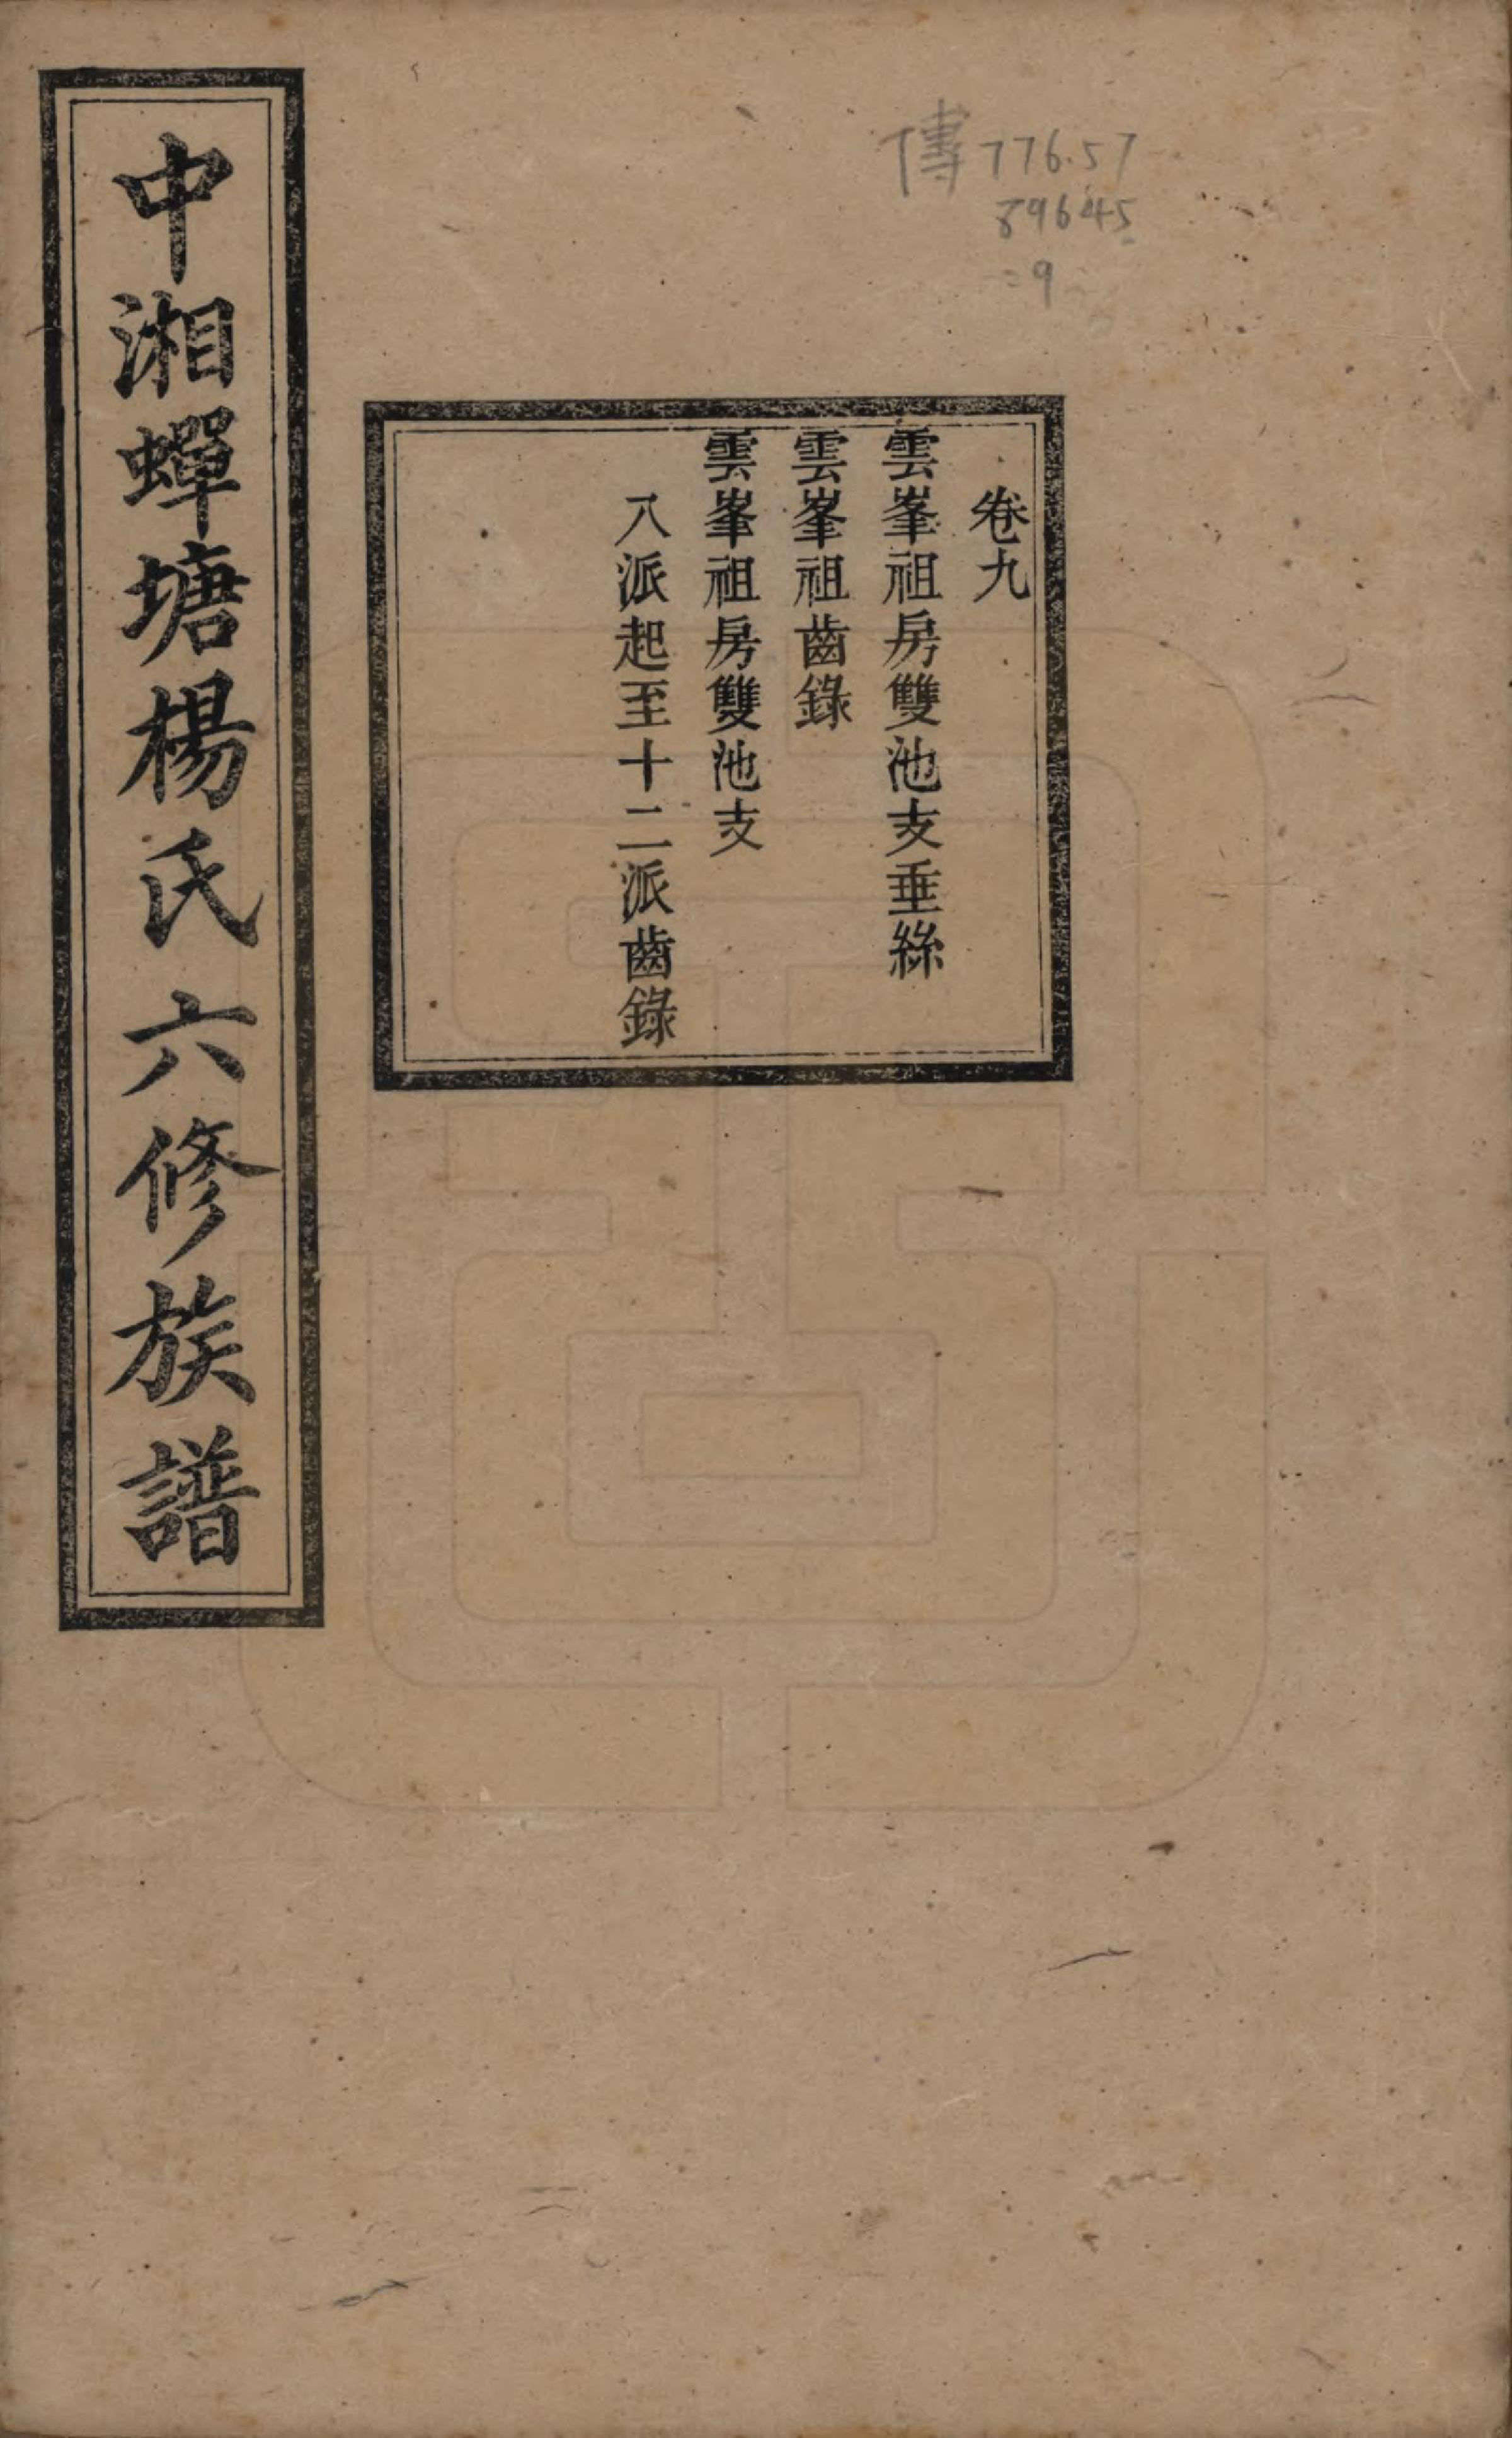 傳 776.57
89645
:9
卷九
雲峯祖房雙池支垂絲
雲峯祖齒錄
雲峯祖房雙池支
八派起至十二派齒錄
中湘蟬塘楊氏六修族譜